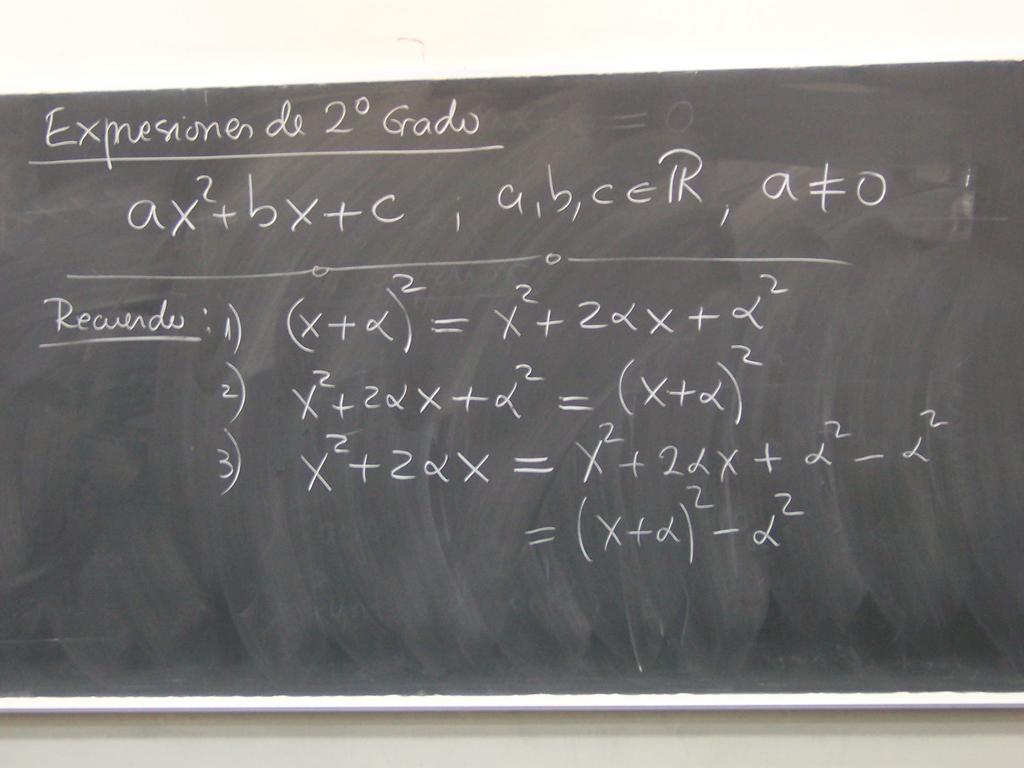 Expresiones de 2º Grado
ax²+bx+c ; a,b,c∈ℝ, a≠0
Recuerdo: 1) (x+α)² = x²+2αx+α²
2) x²+2αx+α² = (x+α)²
3) x²+2αx = x²+2αx+α²-α²
= (x+α)²-α²